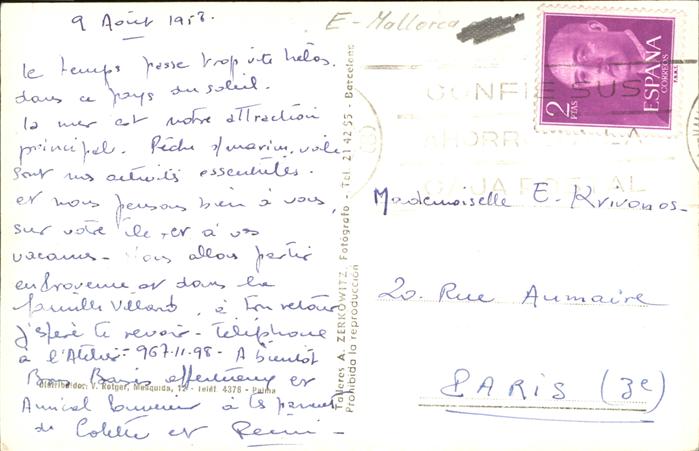 9 Août 1958.
le temps passe trop vite hélas.
dans ce pays du soleil.
la mer est notre attraction
principal. Pêche s/marine, voile
sont nos activités essentielles.
et nous pensons bien à vous,
sur votre île et à vos
vacances - Nous allons partir
en Provence et dans la
famille Villard, à ton retour
j'espère te revoir - Téléphone
à l'Atelier - 967-11-98 - A bientôt
Bons Baisers affectueux et
Amical Souvenir à tes parents
de Colette et Rémi -
Distribuidor: V. Rotger, Mesquida, - Teléf. 4378 - Palma
Talleres A. ZERKOWITZ, Fotógrafo - Tel. 21 42 55 - Barcelona
Prohibida la reproducción
E - Mallorca
2 PTAS
ESPAÑA
CORREOS
CONFIE SUS
AHORROS A LA
CAJA POSTAL
Mademoiselle E. Krivonos -
20. Rue Aumaire
PARIS (3e)